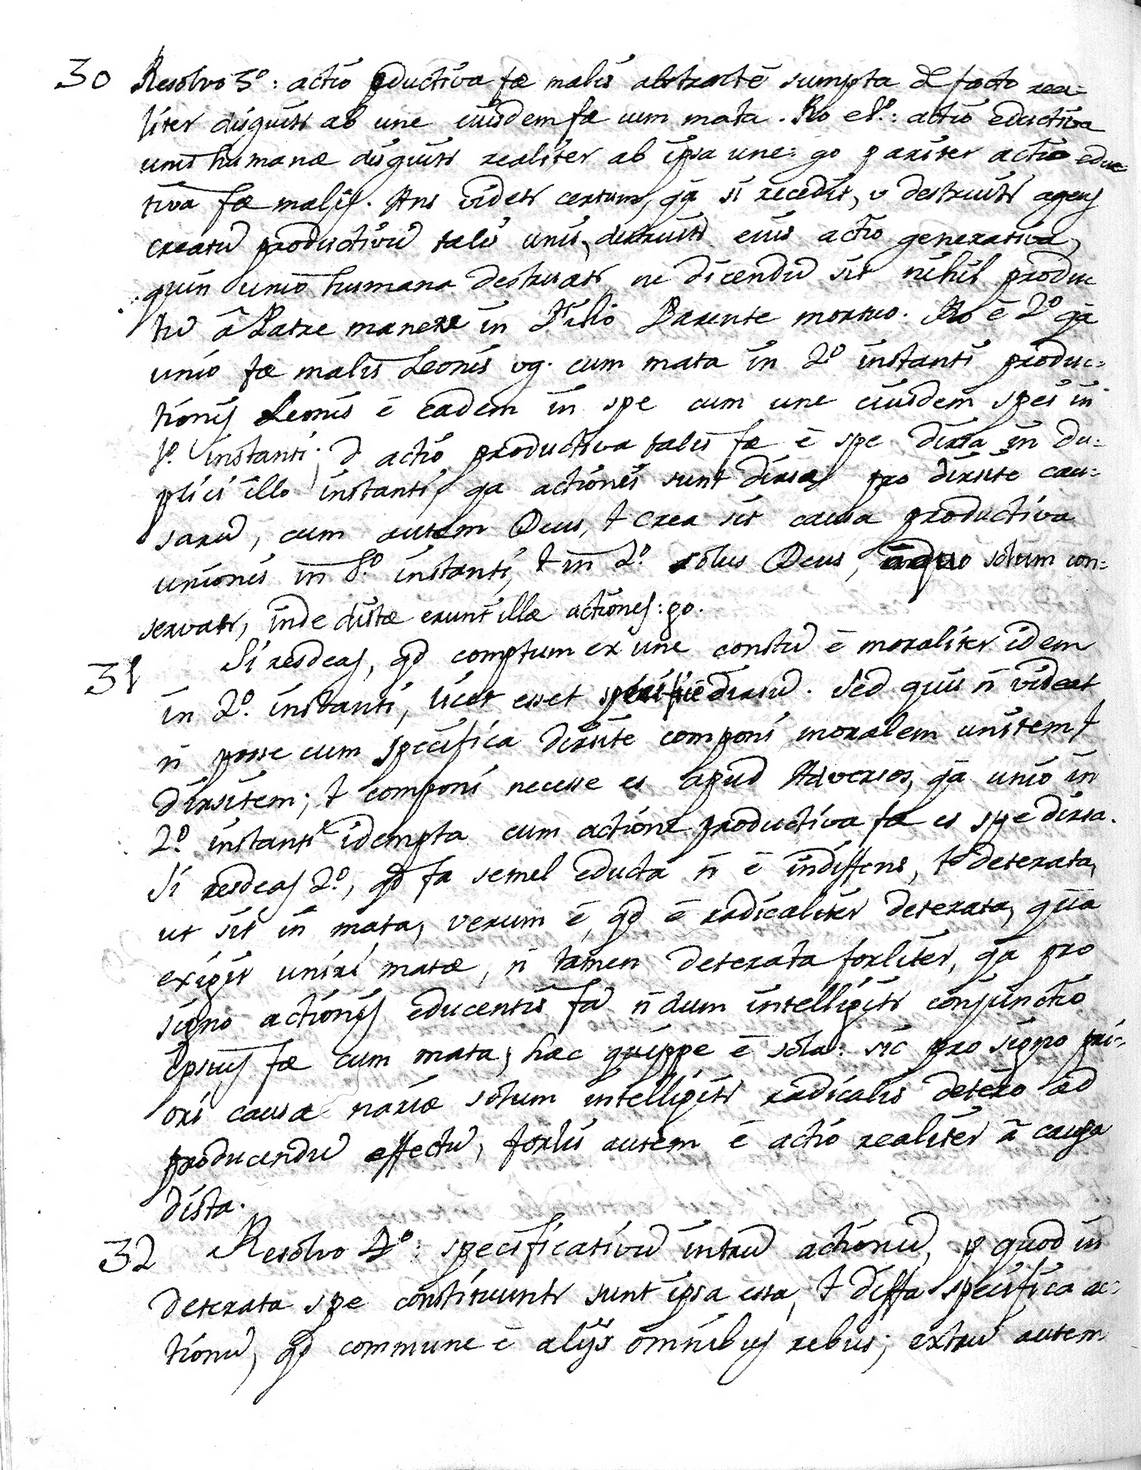 30 Resolvo 3º: actio eductiva fæ malis abstracte sumpta de facto rea-
liter disguitr ab une eiusdem fæ cum mata. Ro eª: actio eductiva
unis humanæ disguitr realiter ab ipsa une: go pariter actio educ
tiva fæ malis. Ans videtr certum, qa si recedit, v destruitr agens
creatū productivū talis unis, destruitr eius actio generativa,
quin unio humana destruatr, ne dicendū sit nihil produc
tū a Patre manere in Filio Parente mortuo. Ro ē 2º qa
unio fæ malis Leonis vg. cum mata in 2º instanti produc-
tionis Leonis ē eadem in spe cum une eiusdem spei in
1º instanti; d actio productiva talis fæ ē spe dirsa in du-
plici illo instanti, qa actiones sunt dirsæ pro dirsite cau-
sarū, cum autem Deus, t crea sit causa productiva
unionis in 1º instanti, t in 2º solus Deus, solum con-
servatr, inde distæ erunt illæ actiones: go.
31 Si resdeas, qd comptum ex une constū ē moraliter idem
in 2º instanti, licet esset specifice dirsū. Sed quis ñ videat
ñ posse cum specifica dirsite componi moralem unitem t
dirsitem; t componi necesse es apud Adversos, qa unio in
2º instanti idempta cum actione productiva fæ es spe dirsa.
Si resdeas 2º, qd fa semel educta ñ ē indiffens, sd deterata,
ut sit in mata, verum ē, qd ē radicaliter deterata, qua
exigit uniri matæ, ñ tamen deterata forliter, qa pro
signo actionis educentis fā ñdum intelligitr conjunctio
ipsius fæ cum mata, hæc quippe ē sola: sic pro signo pri-
ori causæ nariæ solum intelligitr radicalis detero ad
producendū effectū, forlis autem ē actio realiter a causa
dista.
32 Resolvo 4º: specificativū intrū actionū, p quod in
deterata spe constituuntr sunt ipsa essa, t diffa specifica ac-
tionū, qd commune ē alijs omnibus rebus; extrū autem